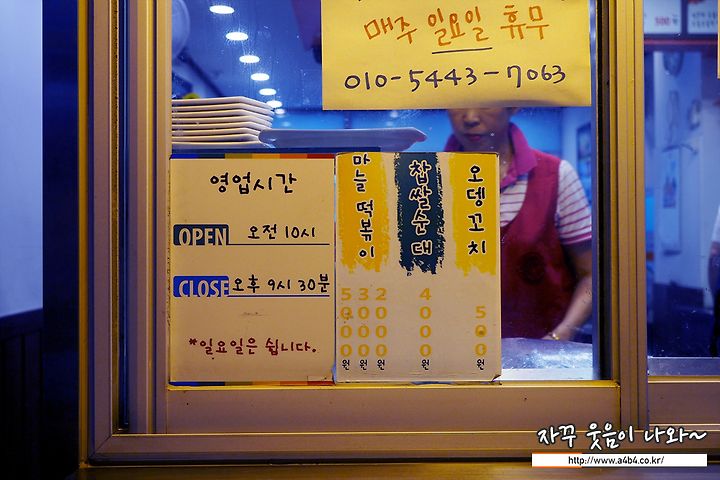 매주 일요일 휴무
010-5443-7063
영업시간
OPEN 오전 10시
CLOSE 오후 9시 30분
*일요일은 쉽니다.
마늘 떡볶이
5000원 3000원 2000원
찹쌀순대
4000원
오뎅꼬치
500원
자꾸 웃음이 나와~
http://www.a4b4.co.kr/